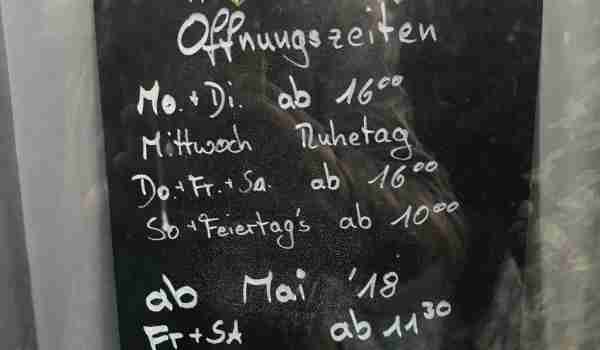 Öffnungszeiten
Mo. + Di. ab 16⁰⁰
Mittwoch Ruhetag
Do. + Fr. + Sa. ab 16⁰⁰
So + Feiertag's ab 10⁰⁰
ab Mai '18
Fr + SA ab 11³⁰